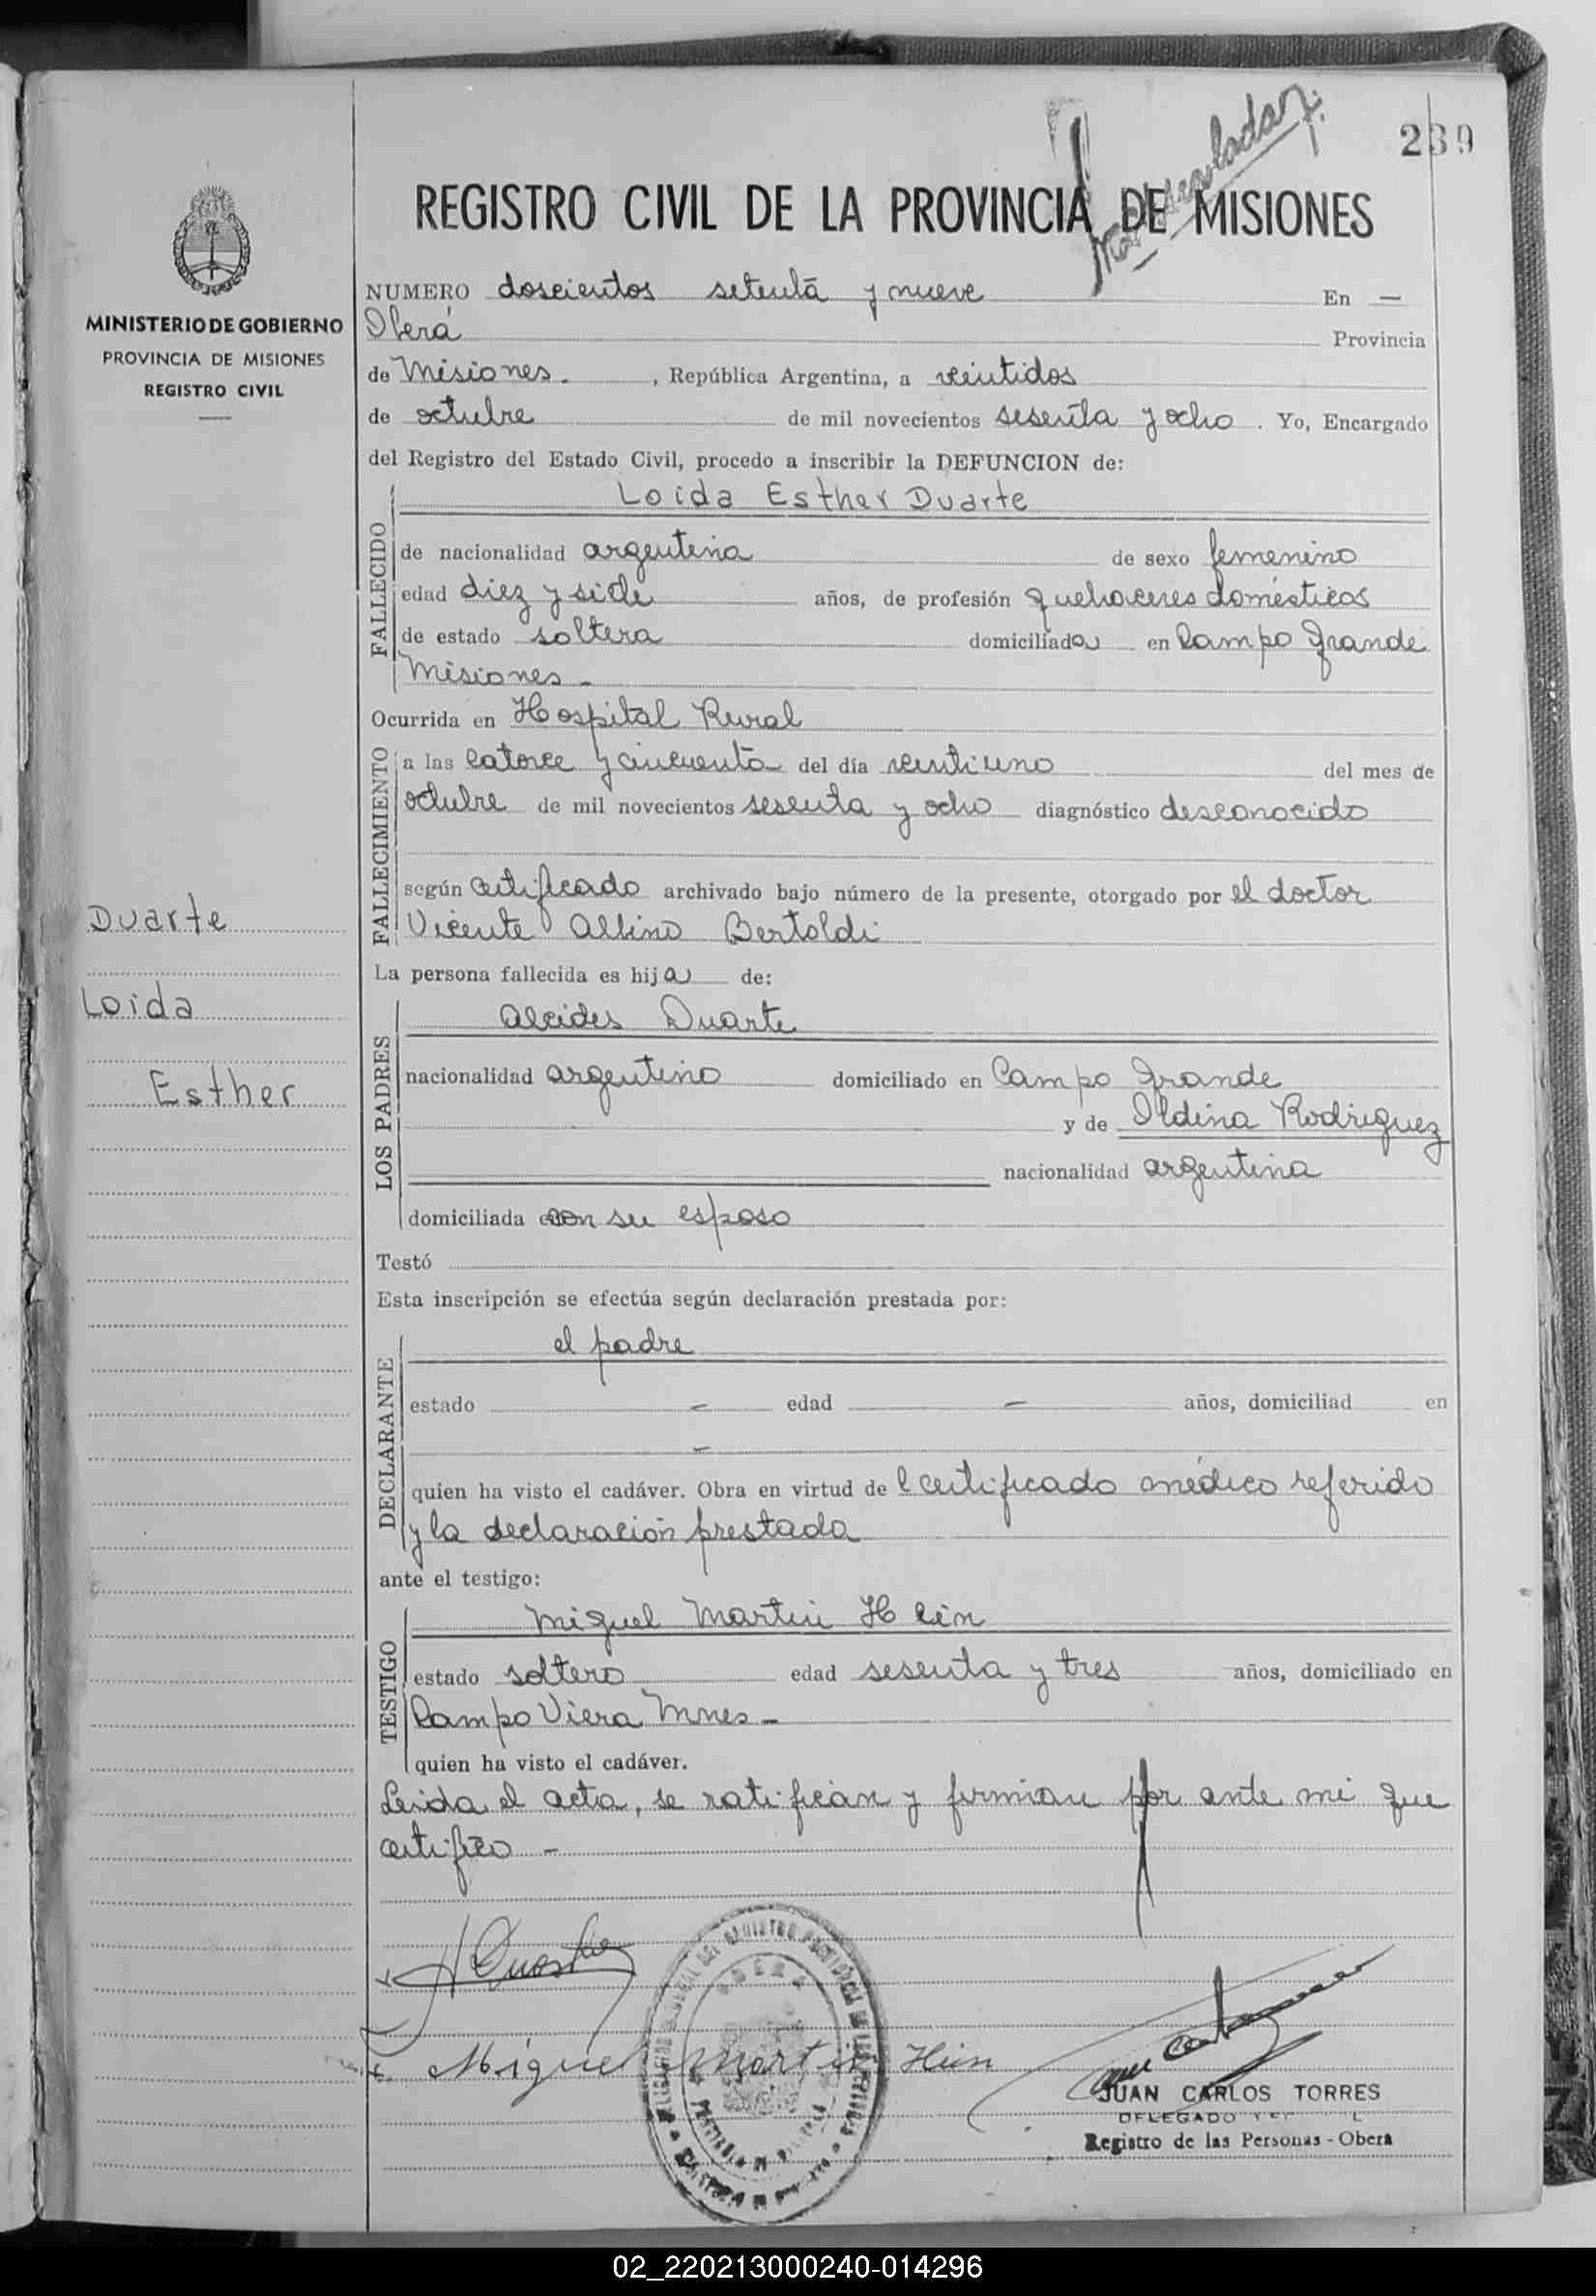 239
REGISTRO CIVIL DE LA PROVINCIA DE MISIONES
MINISTERIO DE GOBIERNO
PROVINCIA DE MISIONES
REGISTRO CIVIL
NUMERO doscientos setenta y nueve En —
Oberá Provincia
de Misiones. , República Argentina, a veintidos
de octubre de mil novecientos sesenta y ocho . Yo, Encargado
del Registro del Estado Civil, procedo a inscribir la DEFUNCION de:
Loida Esther Duarte
FALLECIDO
de nacionalidad argentina de sexo femenino
edad diez y siete años, de profesión quehaceres domésticos
de estado soltera domiciliada en Campo Grande
Misiones -
Ocurrida en Hospital Rural
FALLECIMIENTO
a las catorce y cincuenta del día veintiuno del mes de
octubre de mil novecientos sesenta y ocho diagnóstico desconocido
según certificado archivado bajo número de la presente, otorgado por el doctor
Vicente Albino Bertoldi
Duarte
Loida
Esther
La persona fallecida es hija de:
LOS PADRES
Alcides Duarte
nacionalidad argentino domiciliado en Campo Grande
y de Ildina Rodriguez
nacionalidad argentina
domiciliada con su esposo
Testó
Esta inscripción se efectúa según declaración prestada por:
DECLARANTE
el padre
estado — edad — años, domiciliad en
—
quien ha visto el cadáver. Obra en virtud de l certificado médico referido
y la declaración prestada
ante el testigo:
TESTIGO
Miguel Martin Hein
estado soltero edad sesenta y tres años, domiciliado en
Campo Viera Mnes -
quien ha visto el cadáver.
Leida el acta, se ratifican y firman por ante mi que
certifico -
A Duarte
Miguel Martin Hein
JUAN CARLOS TORRES
DELEGADO
Registro de las Personas - Oberá
02_220213000240-014296